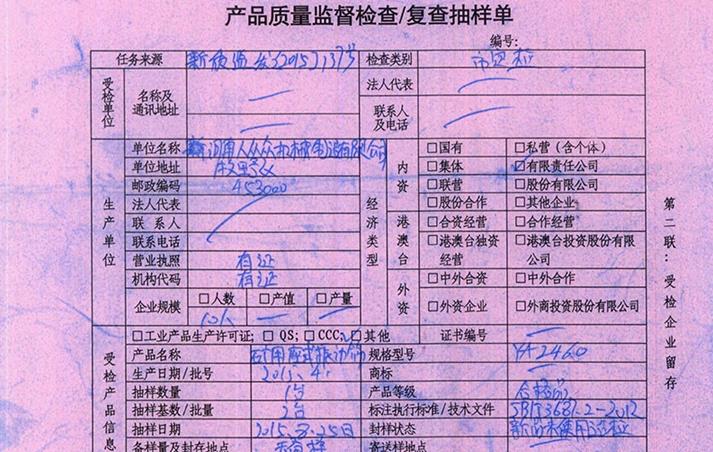 产品质量监督检查/复查抽样单
编号:
任务来源 新质监发〔2015〕137号 检查类别
受检单位 名称及通讯地址 法人代表
联系人及电话
生产单位 单位名称 有限公司
单位地址
邮政编码 453000
法人代表
联系人
联系电话
营业执照 有证
机构代码 有证
企业规模 □人数 □产值 □产量
10人
经济类型 内资 □国有 □私营（含个体）
□集体 □有限责任公司
□联营 □股份有限公司
□股份合作 □其他企业
港澳台 □合资经营 □合作经营
□港澳台独资经营 □港澳台投资股份有限公司
外资 □中外合资 □中外合作
□外资企业 □外商投资股份有限公司
□工业产品生产许可证; □QS; □CCC; □其他 证书编号
受检产品信息 产品名称 规格型号 YA2460
生产日期/批号 2015.4. 商标
抽样数量 1台 产品等级 合格品
抽样基数/批量 2台 标注执行标准/技术文件
抽样日期 2015.8.25日 封样状态
备样量及封存地点 寄送样地点
第二联：受检企业留存